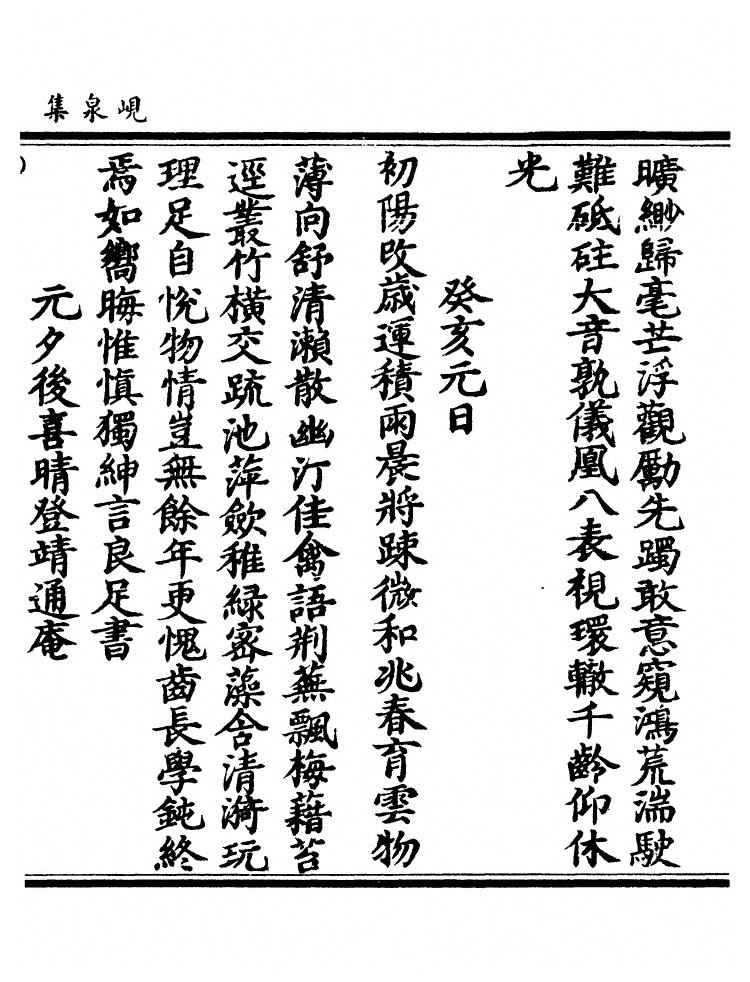 峴泉集
曠緲歸毫芒浮觀勵先躅敢意窺鴻荒湍駛
難砥砫大音孰儀凰八表視環轍千齡仰休
光
癸亥元日
初陽改歲運積雨晨將踈微和兆春育雲物
薄向舒清瀨散幽汀佳禽語荆蕪飄梅藉苔
逕叢竹橫交疏池萍歛稚緑宻藻含清漪玩
理足自悅物情豈無餘年更愧齒長學鈍終
焉如嚮晦惟慎獨紳言良足書
元夕後喜晴登靖通庵